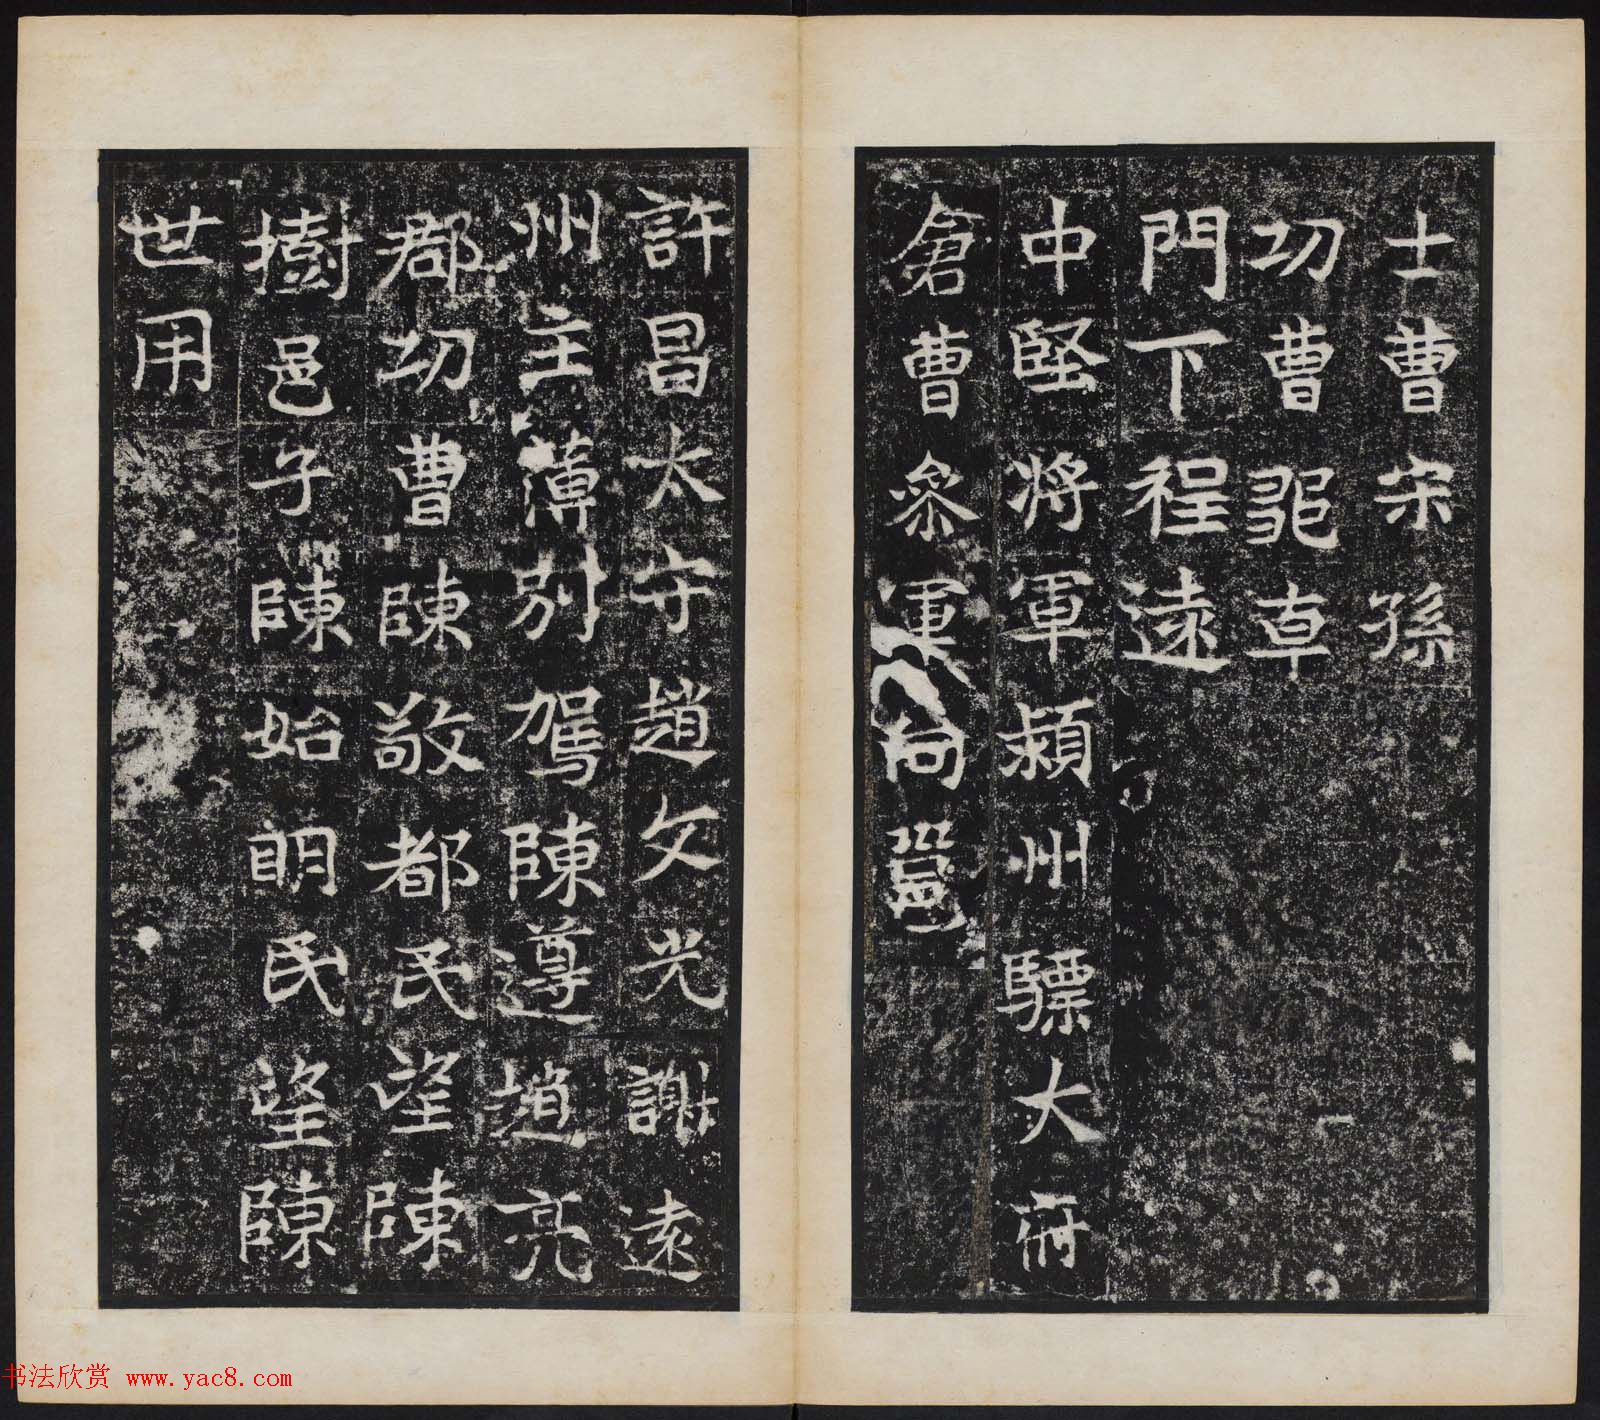 士曹宋孫
功曹郖草
門下程遠
中堅將軍潁州驃大府
倉曹參軍向
許昌太守趙文光謝遠
州主薄別駕陳遵趙亮
郡功曹陳敬都民望陳
樹邑子陳始明民望陳
世用
书法欣赏 www.yac8.com